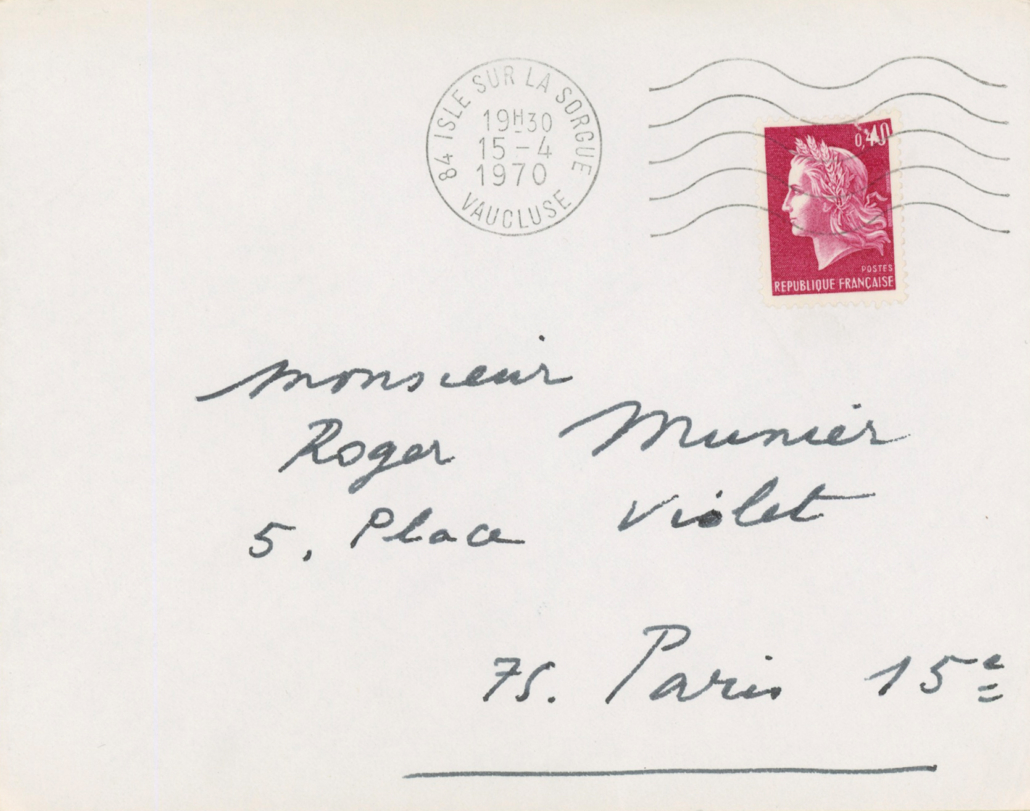 84 ISLE SUR LA SORGUE
19H30
15-4
1970
VAUCLUSE
0,40
POSTES
REPUBLIQUE FRANÇAISE
Monsieur
Roger Munier
5, Place Violet
75. Paris 15e